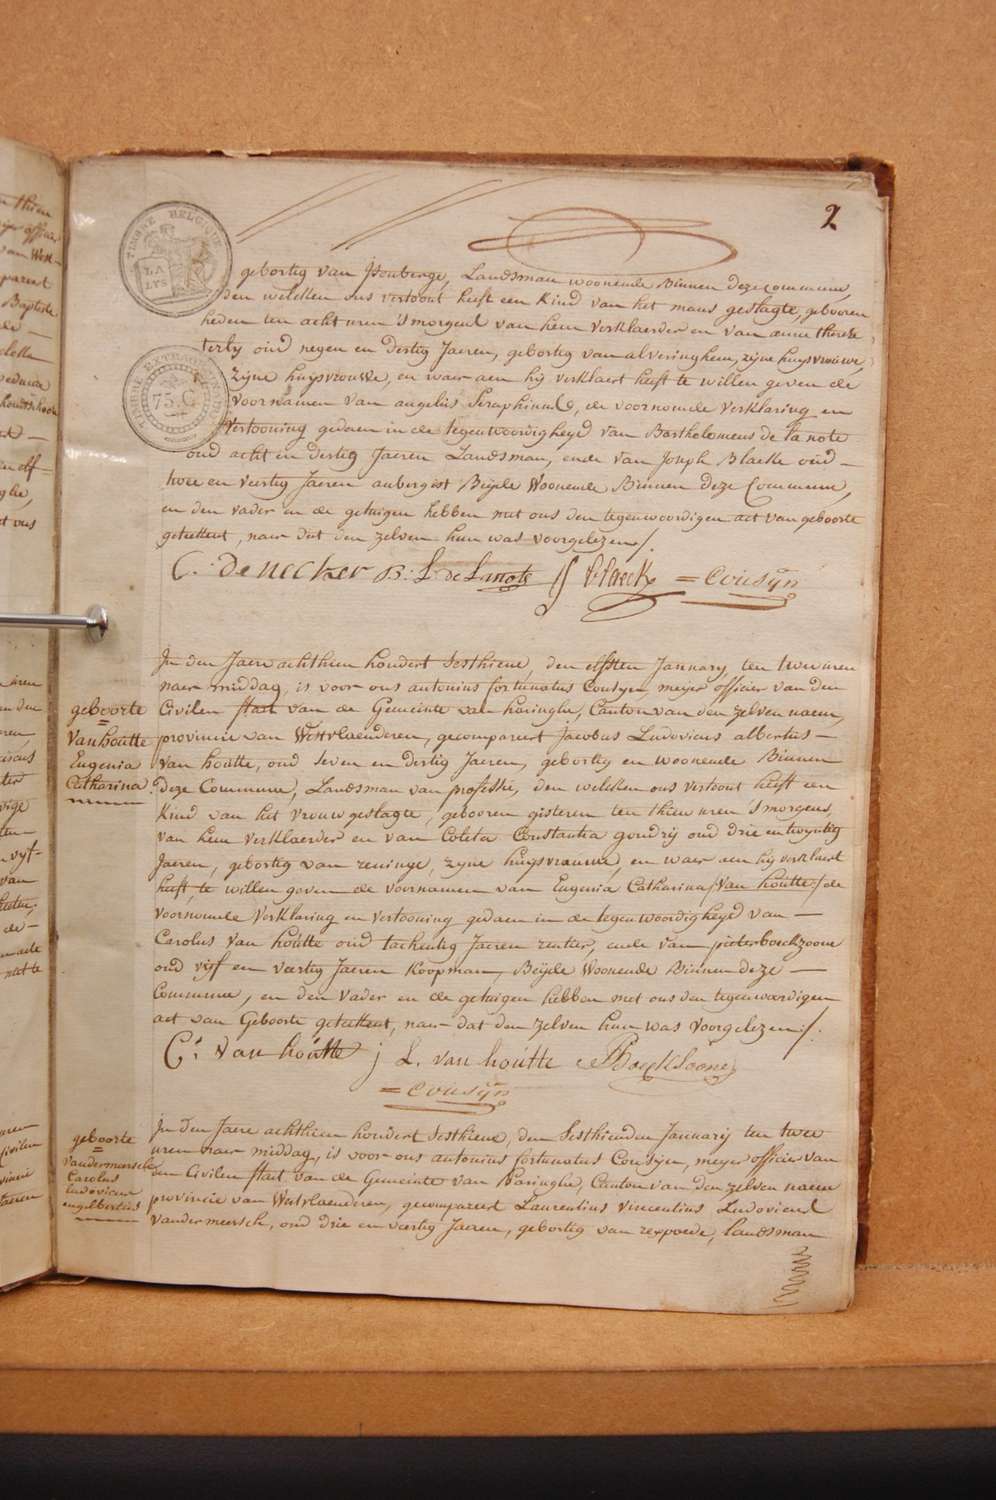 2
TIMBRE BELGIQUE
LA
LYS
TIMBRE EXTRAORD
75.C
gebortig van Isenberge, Landsman woonende Binnen deze commune,
den welcken ons vertoont heeft een kind van het mans geslagte, geboren
heden ten acht uren 'smorgens van hem verklaerder en van anne therese
terby oud negen en dertig Jaeren, gebortig van alveringhem, zijne huysvrouwe,
zijne huysvrouwe, en waer aen hij verklaert heeft te willen geven de
voornamen van angelus Seraphinus, de voornoemde verklaring en
vertooning gedaen in de tegenwoordigheyd van Bartholomeus de la note
oud acht en dertig Jaeren Landsman, ende van Joseph Blaeke oud —
twee en veertig Jaeren aubergist Beijde Woonende Binnen deze Commune,
en den vader en de getuigen hebben met ons den tegenwoordigen act van geboorte
geteekent, naer dat den zelven hun was voorgelezen /.
C. denecker B: L. de Lanote J blaeck = cousijn
In den Jaere achthien hondert sesthiene, den elfsten January, ten twee uren
naer middag, is voor ons antonius fortunatus Cousyn, meyer officier van den
Civilen staet van de Gemeinte van haringhe, Canton van den zelven naem,
provincie van Westvlaenderen, gecompareert jacobus Ludovicus albertus —
Van houtte, oud seven en dertig Jaeren, gebortig en woonende Binnen
Deze Commune, Landsman van professie, den welcken ons vertoont heeft een
kind van het vrouw geslagte, geboren gisteren ten thien uren 'smorgens,
van hem verklaerder en van Coleta Constantia goudzy oud drie en twyntig
Jaeren, gebortig van reninge, zyne huysvrauwe, en waer aen hy verklaert
heeft, te willen geven de voornamen van Eugenia Catharina /van houtte/ de
voornoemde verklaring en vertooning gedaen in de tegenwoordigheyd van —
Carolus Van houtte oud tachentig Jaeren rentier, ende van pieter boeckzoone
oud vijf en veertig Jaeren Koopman, Beijde Woonende Binnen deze —
Commune, en den vader en de getuigen hebben met ons den tegenwoordigen
act van Geboorte geteekent, naer dat den zelven hun was voorgelezen /.
C. Van houtte j L. van houtte PBoecksoone
= cousijn
In den Jaere achthien hondert sesthiene, den sesthienden January ten twee
uren naer middag, is voor ons antonius fortunatus Cousijn, meyer officier van
den Civilen staet van de Gemeinte van haringhe, Canton van den zelven naem
provincie van Westvlaenderen, gecompareert Laurentius vincentius Ludovicus
Vandermeersch, oud drie en veertig Jaeren, gebortig van rexpoede, landsman
geboorte
Van houtte
Eugenia
Catharina.
geboorte
Vandermeersch
Carolus
Ludovicus
engelbertus